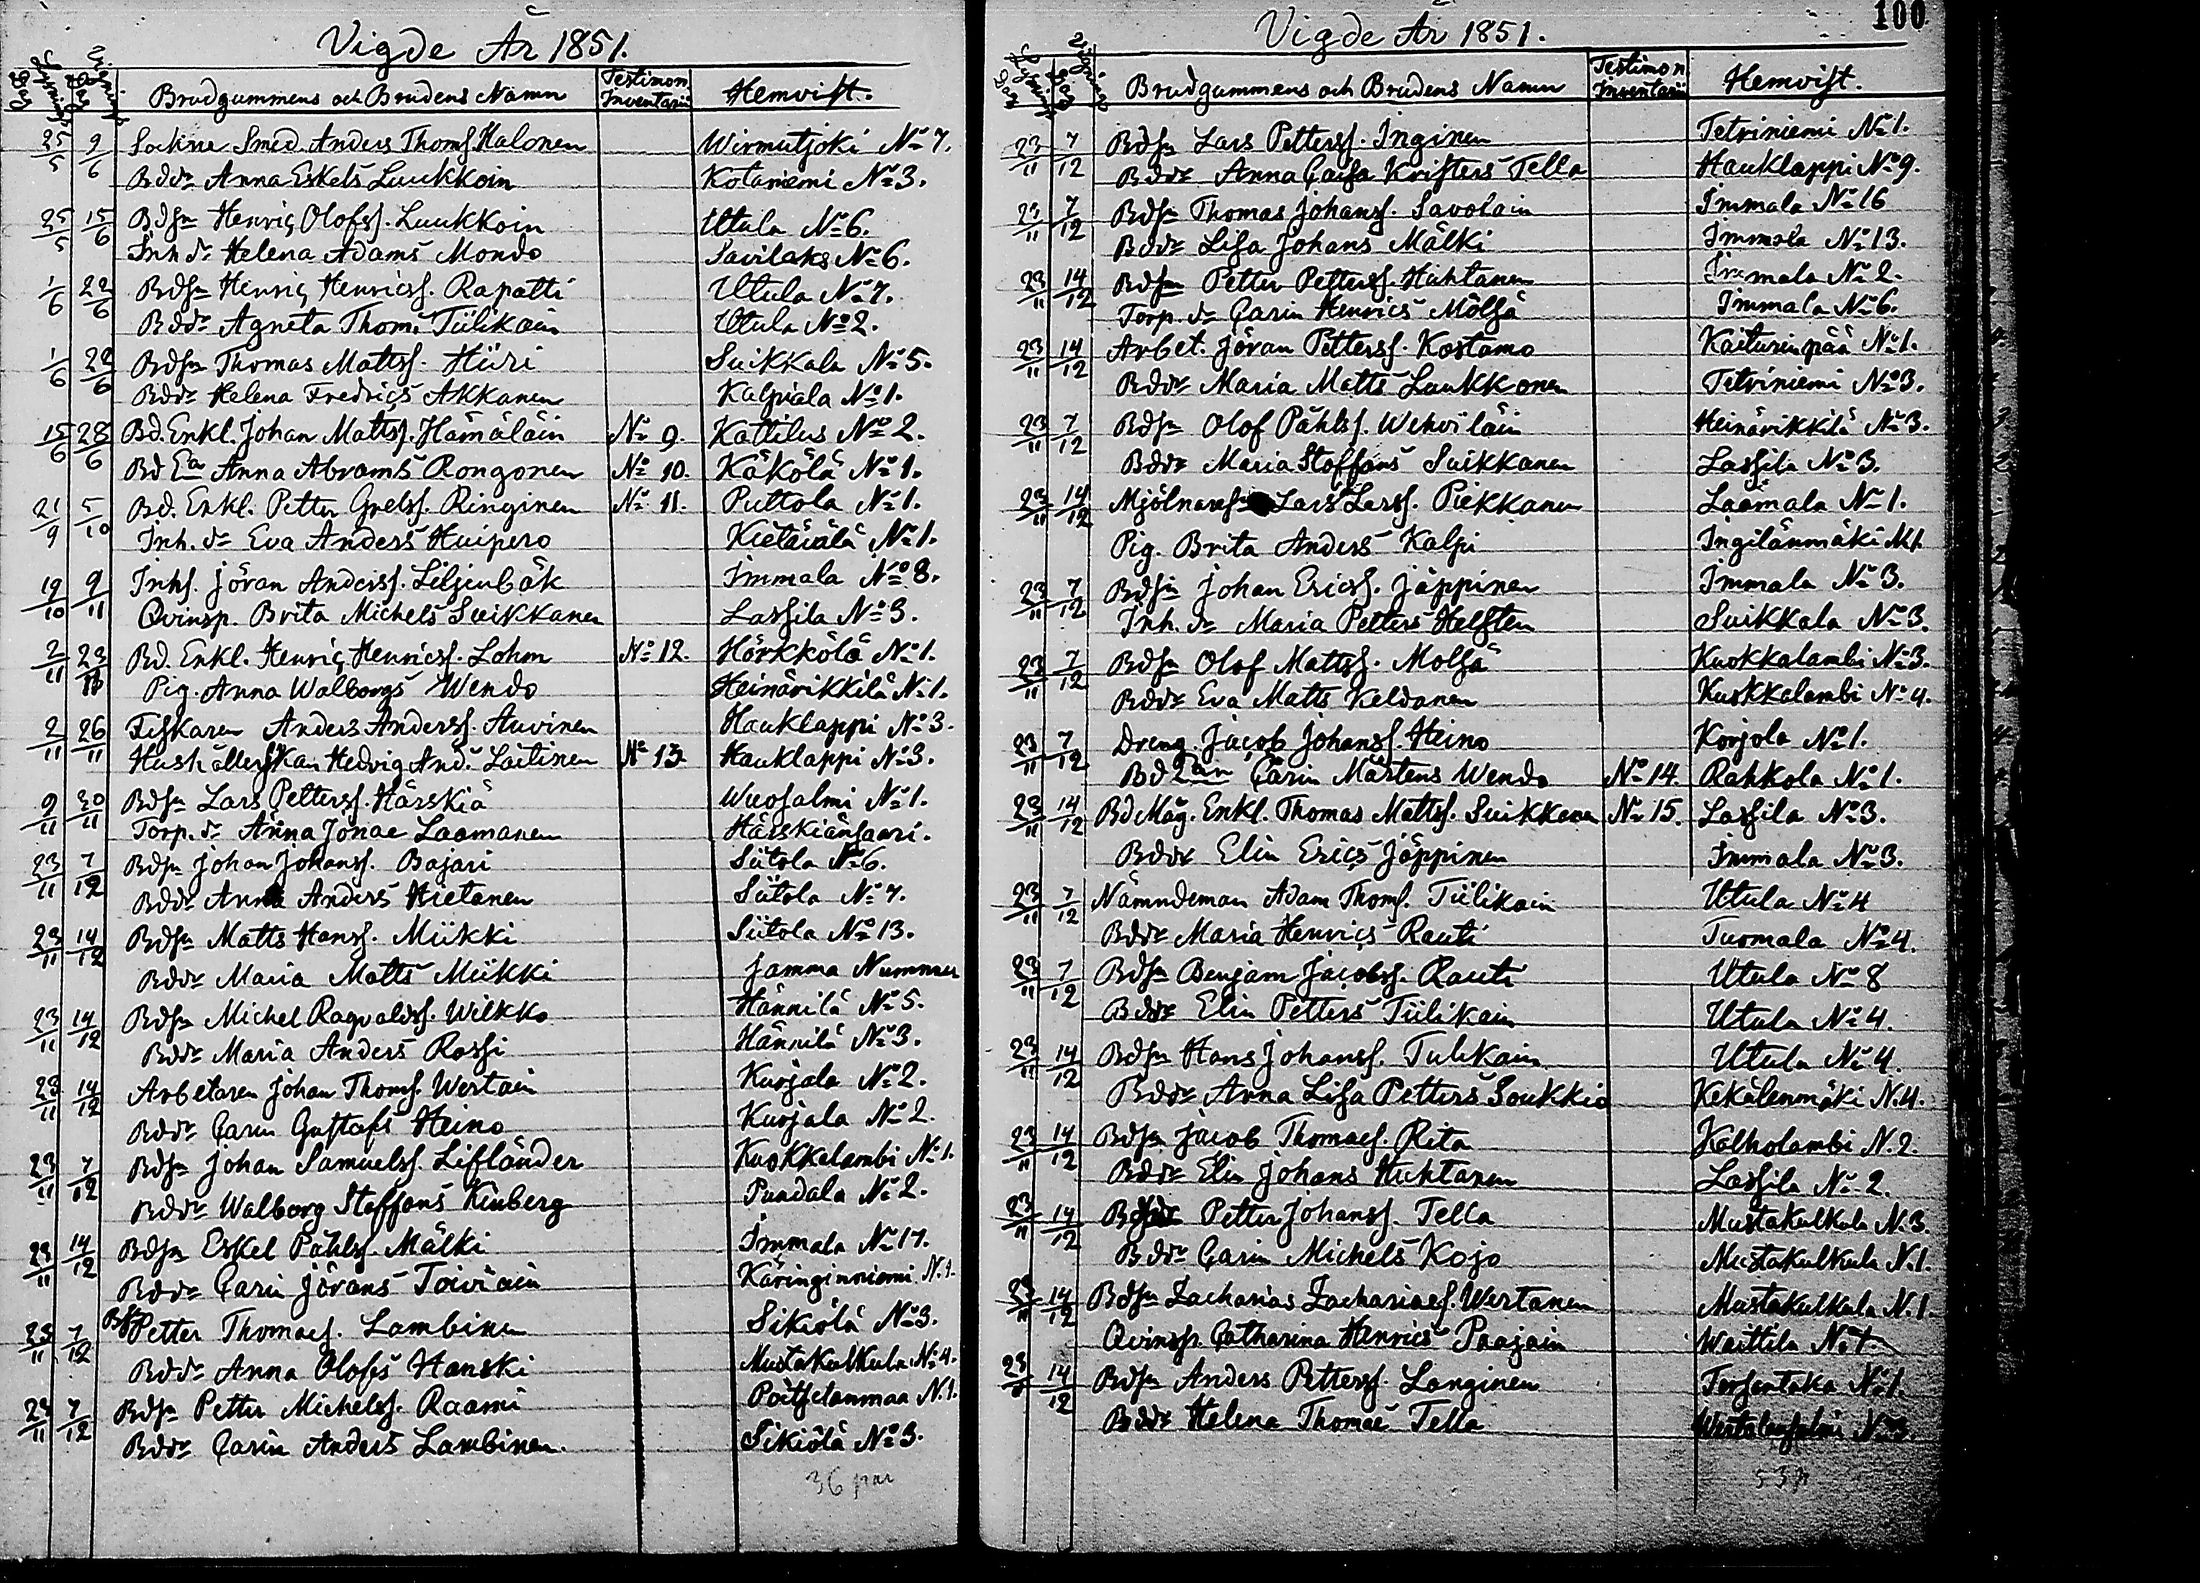 Vigde År 1851.
Lysnings Dag Vignings Dag Brudgummens och Brudens Namn Testimon. Inventarii Hemvist.
25/5 9/6 Sockne Smed Anders Thomss. Halonen Wirmutjoki No 7.
Bddr Anna Eskels Luukkoin Kotaniemi No 3.
25/5 15/6 Bdsn Henric Olofss. Luukkoin Utula No 6.
Inh dr Helena Adams Mondo Savilaks No 6.
1/6 22/6 Bdsn Henric Henricss. Rapatti Utula No 7.
Bddr Agneta Thoms Tiilikain Utula No 2.
1/6 22/6 Bdsn Thomas Mattss. Hiiri Suikkala No 5.
Bddr Helena Fredrics Akkanen Kalpiala No 1.
15/6 28/6 Bd. Enkl. Johan Mattss. Hämäläin No 9. Kattilus No 2.
Bd Ea Anna Abrams Rongonen No 10. Käkölä No 1.
21/9 5/10 Bd. Enkl. Petter Grelss. Ringinen No 11. Puttola No 1.
Inh. dr Eva Anders Huipero Kietäiälä No 1.
19/10 9/11 Inhs. Jöran Anderss. Liljenbäk Immala No 8.
Qvinsp. Brita Michels Suikkanen Lassila No 3.
2/11 23/11 Bd. Enkl. Henric Henricss. Lohm No 12. Hörkkölä No 1.
Pig. Anna Walborgs Wendo Heinärikkilä No 1.
2/11 26/11 Fiskaren Anders Anderss. Auvinen Hauklappi No 3.
Hushållerskan Hedvig And. Laitinen No 13. Hauklappi No 3.
9/11 30/11 Bdsn Lars Petterss. Härskiä Wuosalmi No 1.
Torp. dr Anna Jonae Laamanen Härskiänsaari.
23/11 7/12 Bdsn Johan Johanss. Bajari Siitola No 6.
Bddr Anna Anders Hietanen Siitola No 7.
23/11 14/12 Bdsn Matts Hanss. Miikki Siitola No 13.
Bddr Maria Matts Miikki Samma Nummer
23/11 14/12 Bdsn Michel Ragvaldss. Wilkko Hännilä No 5.
Bddr Maria Anders Rossi Hännilä No 3.
23/11 14/12 Arbetaren Johan Thomss. Wertain Kurjala No 2.
Bddr Carin Gustafs Heino Kurjala No 2.
23/11 7/12 Bdsn Johan Samuelss. Lifländer Kuokkalambi No 1.
Bddr Walborg Staffans Kinberg Pundala No 2.
23/11 14/12 Bdsn Eskel Påhlss. Mälki Immala No 17.
Bddr Carin Jörans Toiviain Käringinniemi N. 1.
23/11 7/12 Bds Petter Thomaes. Lambinen Sikiölä No 3.
Bddr Anna Olofs Hanski Mustakulkula No 4.
23/11 7/12 Bdsn Petter Michelss. Raami Poitselanmaa N. 1.
Bddr Carin Anders Lambinen. Sikiölä No 3.
36 par
100
Vigde År 1851.
Lysnings Dag Vignings Dag Brudgummens och Brudens Namn Testimon. Inventarii Hemvist.
23/11 7/12 Bdsn Lars Petterss. Inginen Tetriniemi No 1.
Bddr Anna Caisa Kristers Tella Hauklappi No 9.
23/11 7/12 Bdsn Thomas Johanss. Savolain Immala No 16
Bddr Lisa Johans Mälki Immala No 13.
23/11 14/12 Bdsn Petter Petterss. Huhtanen Immala No 2.
Torp. dr Carin Henrics Mölsä Immala No 6.
23/11 14/12 Arbet. Jöran Petterss. Kostamo Kaiturinpää No 1.
Bddr Maria Matts Luukkonen Tetriniemi No 3.
23/11 7/12 Bdsn Olof Påhlss. Wehviläin Heinärikkilä No 3.
Bddr Maria Staffans Suikkanen Lassila No 3.
23/11 14/12 Mjölnares Lars Larss. Piekkanen Laamala No 1.
Pig. Brita Anders Kalpi Ingilänmäki No 1
23/11 7/12 Bdsn Johan Ericss. Jäppinen Immala No 3.
Inh. dr Maria Petters Helsten Suikkala No 3.
23/11 7/12 Bdsn Olof Mattss. Molsä Kuokkalambi No 3.
Bddr Eva Matts Keldanen Kuokkalambi No 4.
23/11 7/12 Dreng. Jacob Johanss. Heino Korjola No 1.
Bd Ean Carin Mårtens Wendo No 14. Rahkola No 1.
23/11 14/12 Bd Måg. Enkl. Thomas Mattss. Suikkanen No 15. Lassila No 3.
Bddr Elin Erics Jäppinen Immala No 3.
23/11 7/12 Nämndeman Adam Thoms. Tiilikain Utula No 4
Bddr Maria Henrics Rauti Tuomala No 4.
23/11 7/12 Bdsn Benjam Jacobss. Rauti Utula No 8
Bddr Elin Petters Tiilikain Utula No 4.
23/11 14/12 Bdsn Hans Johanss. Tulikain Utula No 4.
Bddr Anna Lisa Petters Soukkio Kekälenmäki N. 4.
23/11 14/12 Bdsn Jacob Thomaes. Rita Kalholambi N. 2.
Bddr Elin Johans Huhtanen Lassila No 2.
23/11 14/12 Petter Johanss. Tella Mustakulkula N. 3.
Bddr Carin Michels Kojo Mustakulkula N. 1.
23/11 14/12 Bdsn Zacharias Zachariaes. Wertanen Mustakulkula N. 1.
Qvinsp. Catharina Henrics Paajain Waittila No 1.
23/11 14/12 Bdsn Anders Petterss. Langinen Torsantaka No 1.
Bddr Helena Thomae Tella No 3
53 p